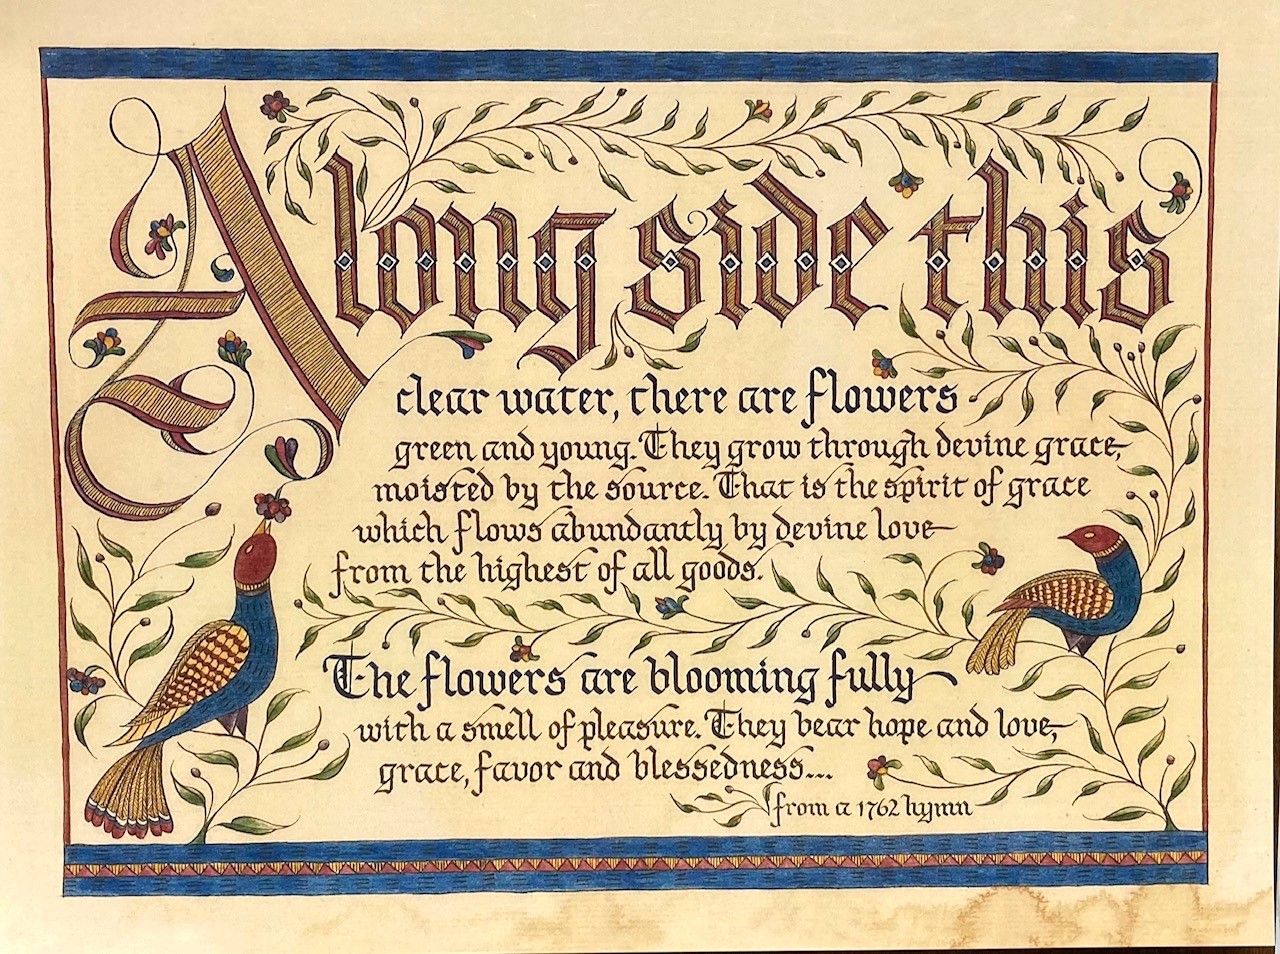 Along side this
clear water, there are flowers
green and young. They grow through devine grace,
moisted by the source. That is the spirit of grace
which flows abundantly by devine love
from the highest of all goods.
The flowers are blooming fully
with a smell of pleasure. They bear hope and love,
grace, favor and blessedness...
from a 1762 hymn